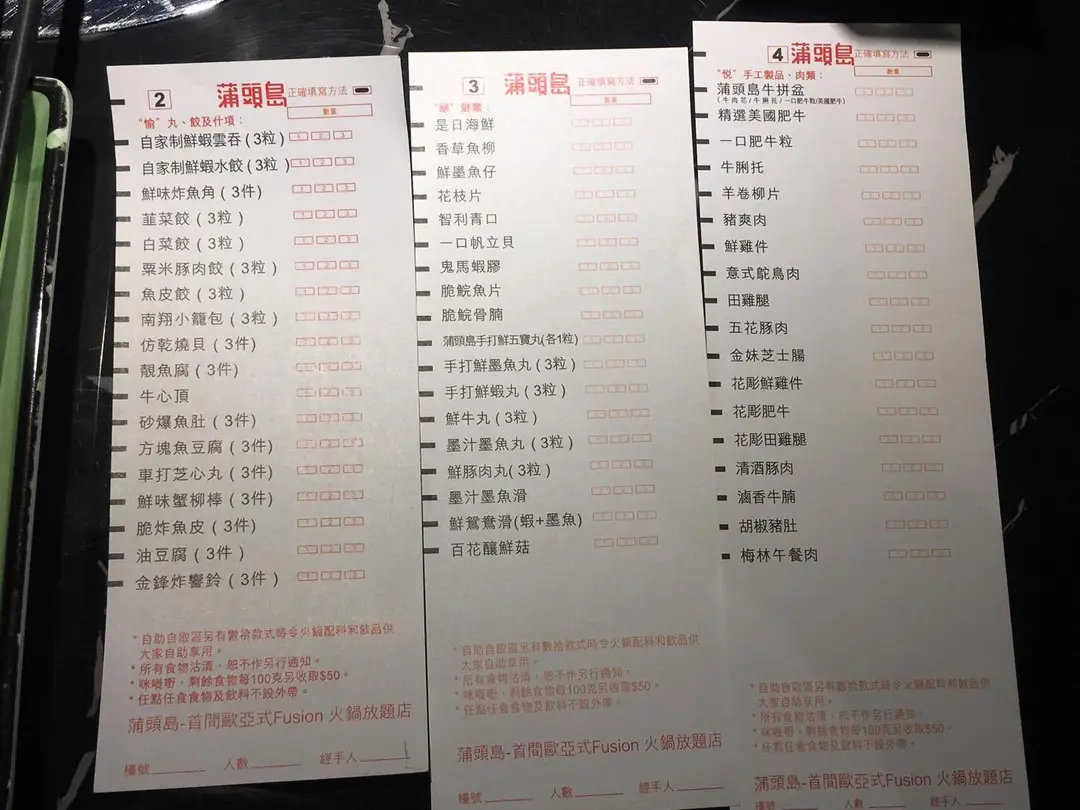 2 蒲頭島 正確填寫方法
數量
“愉”丸、餃及什項：
自家制鮮蝦雲吞(3粒) 1 2 3
自家制鮮蝦水餃(3粒) 1 2 3
鮮味炸魚角(3件) 1 2 3
韮菜餃(3粒) 1 2 3
白菜餃(3粒) 1 2 3
粟米豚肉餃(3粒) 1 2 3
魚皮餃(3粒) 1 2 3
南翔小籠包(3粒) 1 2 3
仿乾燒貝(3件) 1 2 3
靚魚腐(3件) 1 2 3
牛心頂 1 2 3
砂爆魚肚(3件) 1 2 3
方塊魚豆腐(3件) 1 2 3
車打芝心丸(3件) 1 2 3
鮮味蟹柳棒(3件) 1 2 3
脆炸魚皮(3件) 1 2 3
油豆腐(3件) 1 2 3
金鋒炸響鈴(3件) 1 2 3
*自助自取區另有數拾款式時令火鍋配料和飲品供
大家自助享用。
*所有食物沽清，恕不作另行通知。
*咪嘥嘢，剩餘食物每100克另收取$50。
*任點任食食物及飲料不設外帶。
蒲頭島-首間歐亞式Fusion 火鍋放題店
檯號 人數 經手人
3 蒲頭島 正確填寫方法
數量
鮮業：
是日海鮮
香草魚柳
鮮墨魚仔
花枝片
智利青口
一口帆立貝
鬼馬蝦膠
脆鯇魚片
脆鯇骨腩
蒲頭島手打鮮五寶丸(各1粒)
手打鮮墨魚丸(3粒)
手打鮮蝦丸(3粒)
鮮牛丸(3粒)
墨汁墨魚丸(3粒)
鮮豚肉丸(3粒)
墨汁墨魚滑
鮮鴛鴦滑(蝦+墨魚)
百花釀鮮菇
*自助自取區另有數拾款式時令火鍋配料和飲品供
大家自助享用。
*所有食物沽清，恕不作另行通知。
*咪嘥嘢，剩餘食物每100克另收取$50。
*任點任食食物及飲料不設外帶。
蒲頭島-首間歐亞式Fusion 火鍋放題店
檯號 人數 經手人
4 蒲頭島 正確填寫方法
數量
“悅”手工製品、肉類：
蒲頭島牛拼盆
(牛肉花/牛脷托/一口肥牛粒/美國肥牛)
精選美國肥牛
一口肥牛粒
牛脷托
羊卷柳片
豬爽肉
鮮雞件
意式鴕鳥肉
田雞腿
五花豚肉
金妹芝士腸
花彫鮮雞件
花彫肥牛
花彫田雞腿
清酒豚肉
滷香牛腩
胡椒豬肚
梅林午餐肉
*自助自取區另有數拾款式時令火鍋配料和飲品供
大家自助享用。
*所有食物沽清，恕不作另行通知。
*咪嘥嘢，剩餘食物每100克另收取$50。
*任點任食食物及飲料不設外帶。
蒲頭島-首間歐亞式Fusion 火鍋放題店
檯號 人數 經手人